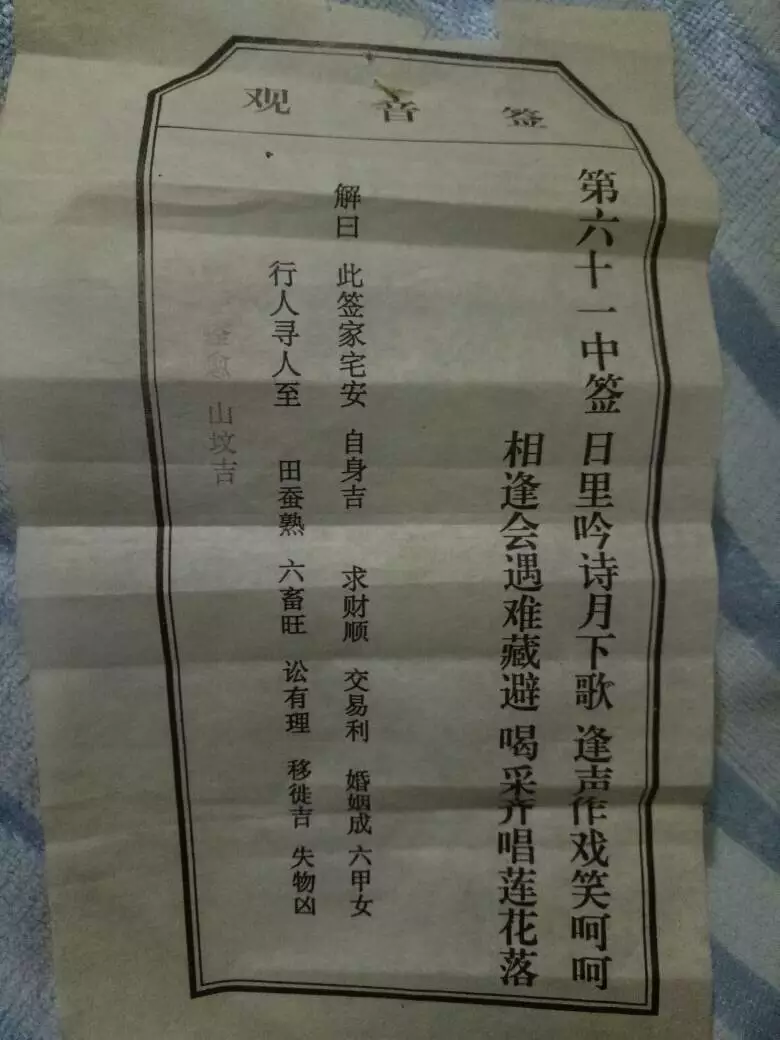 观音签
第六十一中签
日里吟诗月下歌 逢声作戏笑呵呵
相逢会遇难藏避 喝采齐唱莲花落
解曰 此签家宅安 自身吉 求财顺 交易利 婚姻成 六甲女
行人寻人至 田蚕熟 六畜旺 讼有理 移徙吉 失物凶
山坟吉